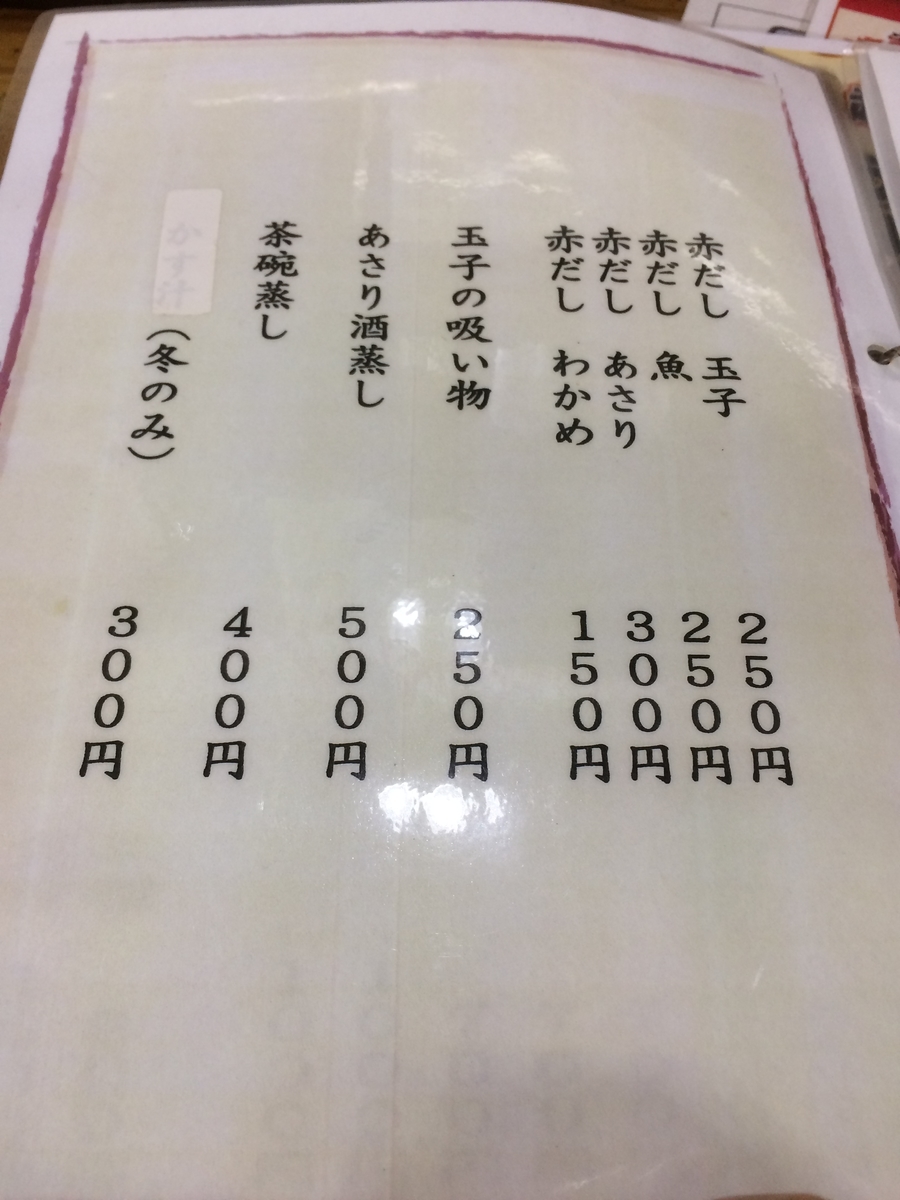 赤だし 玉子 250円
赤だし 魚 250円
赤だし あさり 300円
赤だし わかめ 150円
玉子の吸い物 250円
あさり酒蒸し 500円
茶碗蒸し 400円
かす汁(冬のみ) 300円